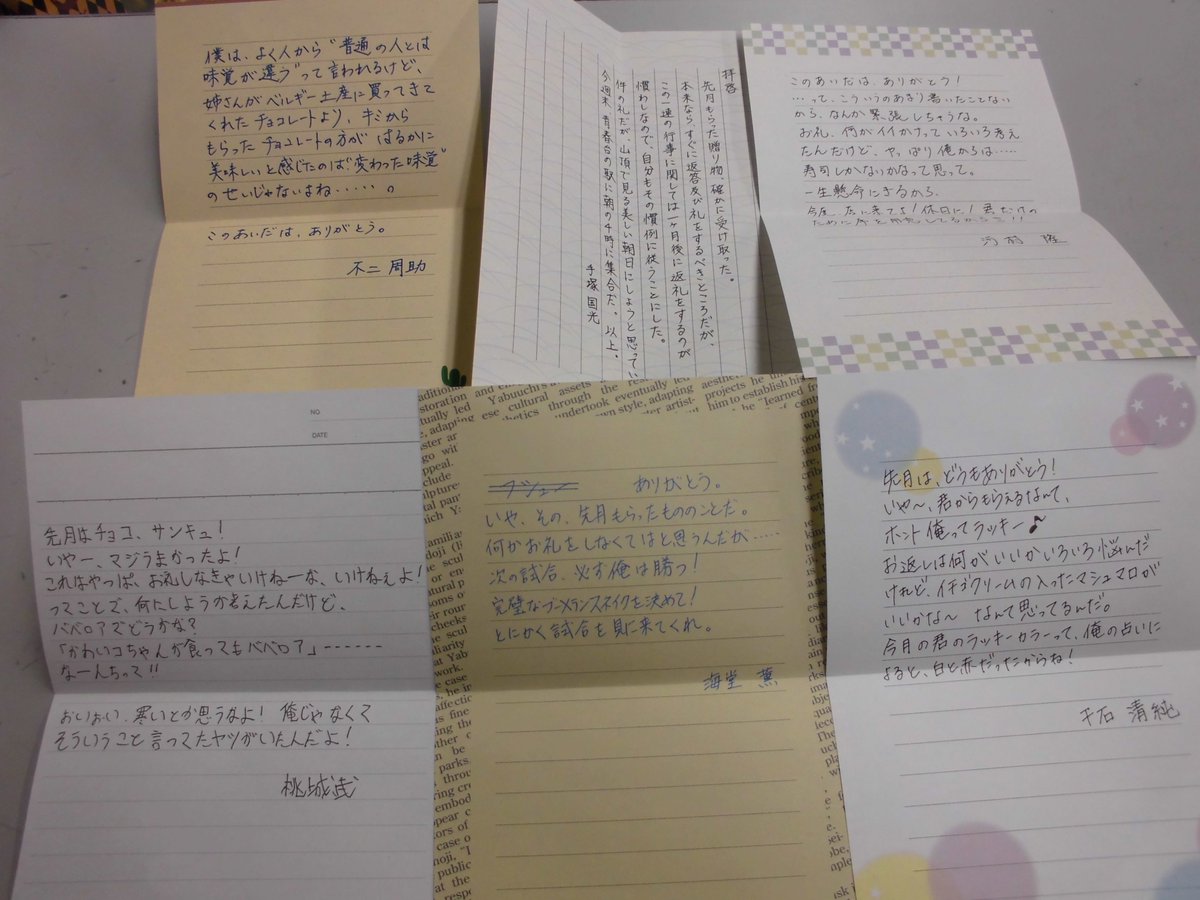 僕は、よく人から“普通の人とは
味覚が違う”って言われるけど、
姉さんがベルギー土産に買ってきて
くれたチョコレートより、キミから
もらったチョコレートの方が はるかに
美味しいと感じたのは“変わった味覚”
のせいじゃないよね・・・・・。
このあいだは、ありがとう。
不二 周助
拝啓
先月もらった贈り物 確かに受け取った。
本来なら、すぐに返答及び礼をするべきところだが、
この一連の行事に関しては一ヶ月後に返礼をするのが
慣わしなので、自分もその慣例に従うことにした。
件の礼だが、山頂で見る美しい朝日にしようと思ってい
今週末、青春台の駅に朝の4時に集合だ。以上。
手塚国光
このあいだは、ありがとう!
・・・って、こういうのあまり書いたことない
から、なんか緊張しちゃうな。
お礼、何がイイかけっていろいろ考え
たんだけど、やっぱり俺からは・・・・・
寿司しかないかなって思って。
一生懸命にぎるから、
今度、店に来てよ!休日に!君だけの
ために
河村 隆
NO.
DATE
先月はチョコ、サンキュ!
いやー、マジうまかったよ!
これはやっぱ、お礼しなきゃいけねーな、いけねぇよ!
ってことで、何にしようか考えたんだけど、
ババロアでどうかな?
「かわいコちゃんが食ってもババロア」------
なーんちって!!
おいおい、寒いとか思うなよ! 俺じゃなくて
そういうこと言ってたヤツがいたんだよ!
桃城武
ありがとう。
いや、その、先月もらったもののことだ。
何かお礼をしなくてはと思うんだが・・・・・
次の試合、必ず俺は勝つ!
完璧なブーメランスネイクを決めて!
とにかく試合を見に来てくれ。
海堂 薫
先月は、どうもありがとう!
いや〜、君からもらえるなんて、
ホント俺ってラッキー♪
お返しは何がいいかいろいろ悩んだ
けれど、イチゴクリームの入ったマシュマロが
いいかな〜 なんて思ってるんだ。
今月の君のラッキーカラーって、俺の占いに
よると、白と赤だったからね!
千石 清純